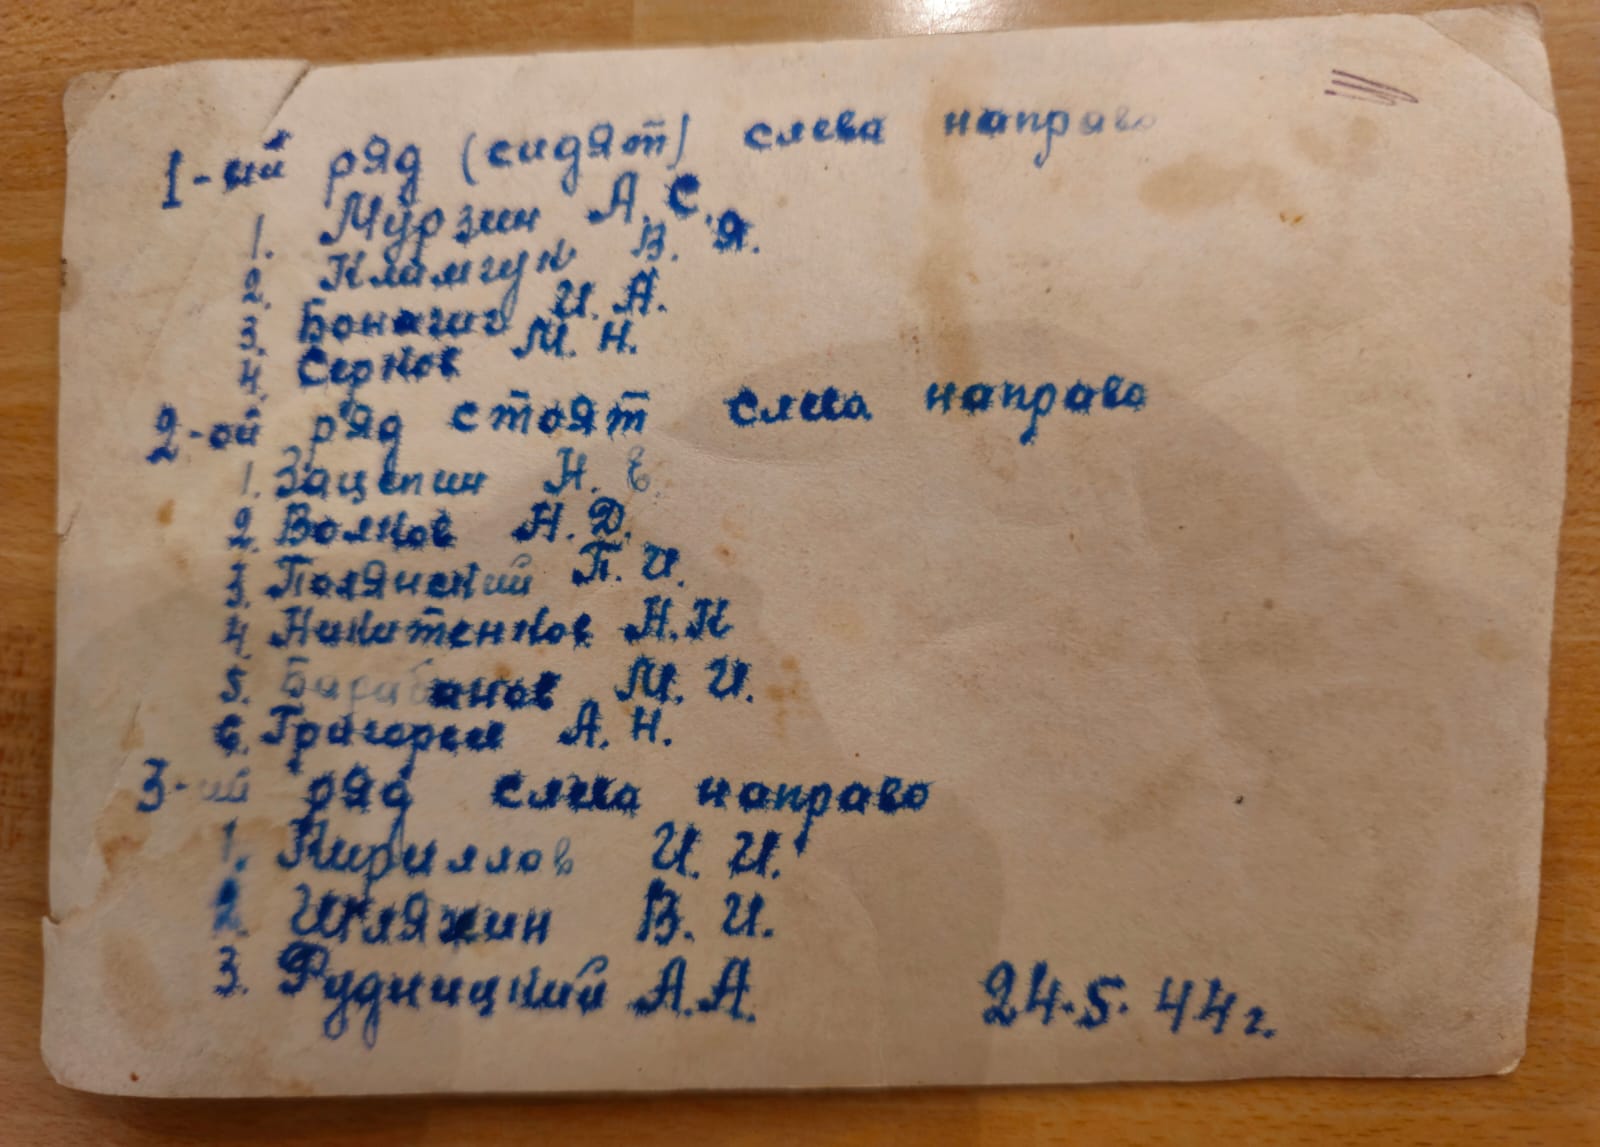 1-ый ряд (сидят) слева направо
1. Мурзин А. С.
2. В. Я.
3. И. А.
4. Серков М. Н.
2-ой ряд стоят слева направо
1. Зацепин Н. Е.
2. Волков Н. Д.
3. Полянский П. И.
4. Никитенков Н. К
5. Барабанов М. И.
6. Григорьев А. Н.
3-ий ряд слева направо
1. Кириллов И. И.
2. Шляхин В. И.
3. Рудницкий А. А.
24.5.44г.